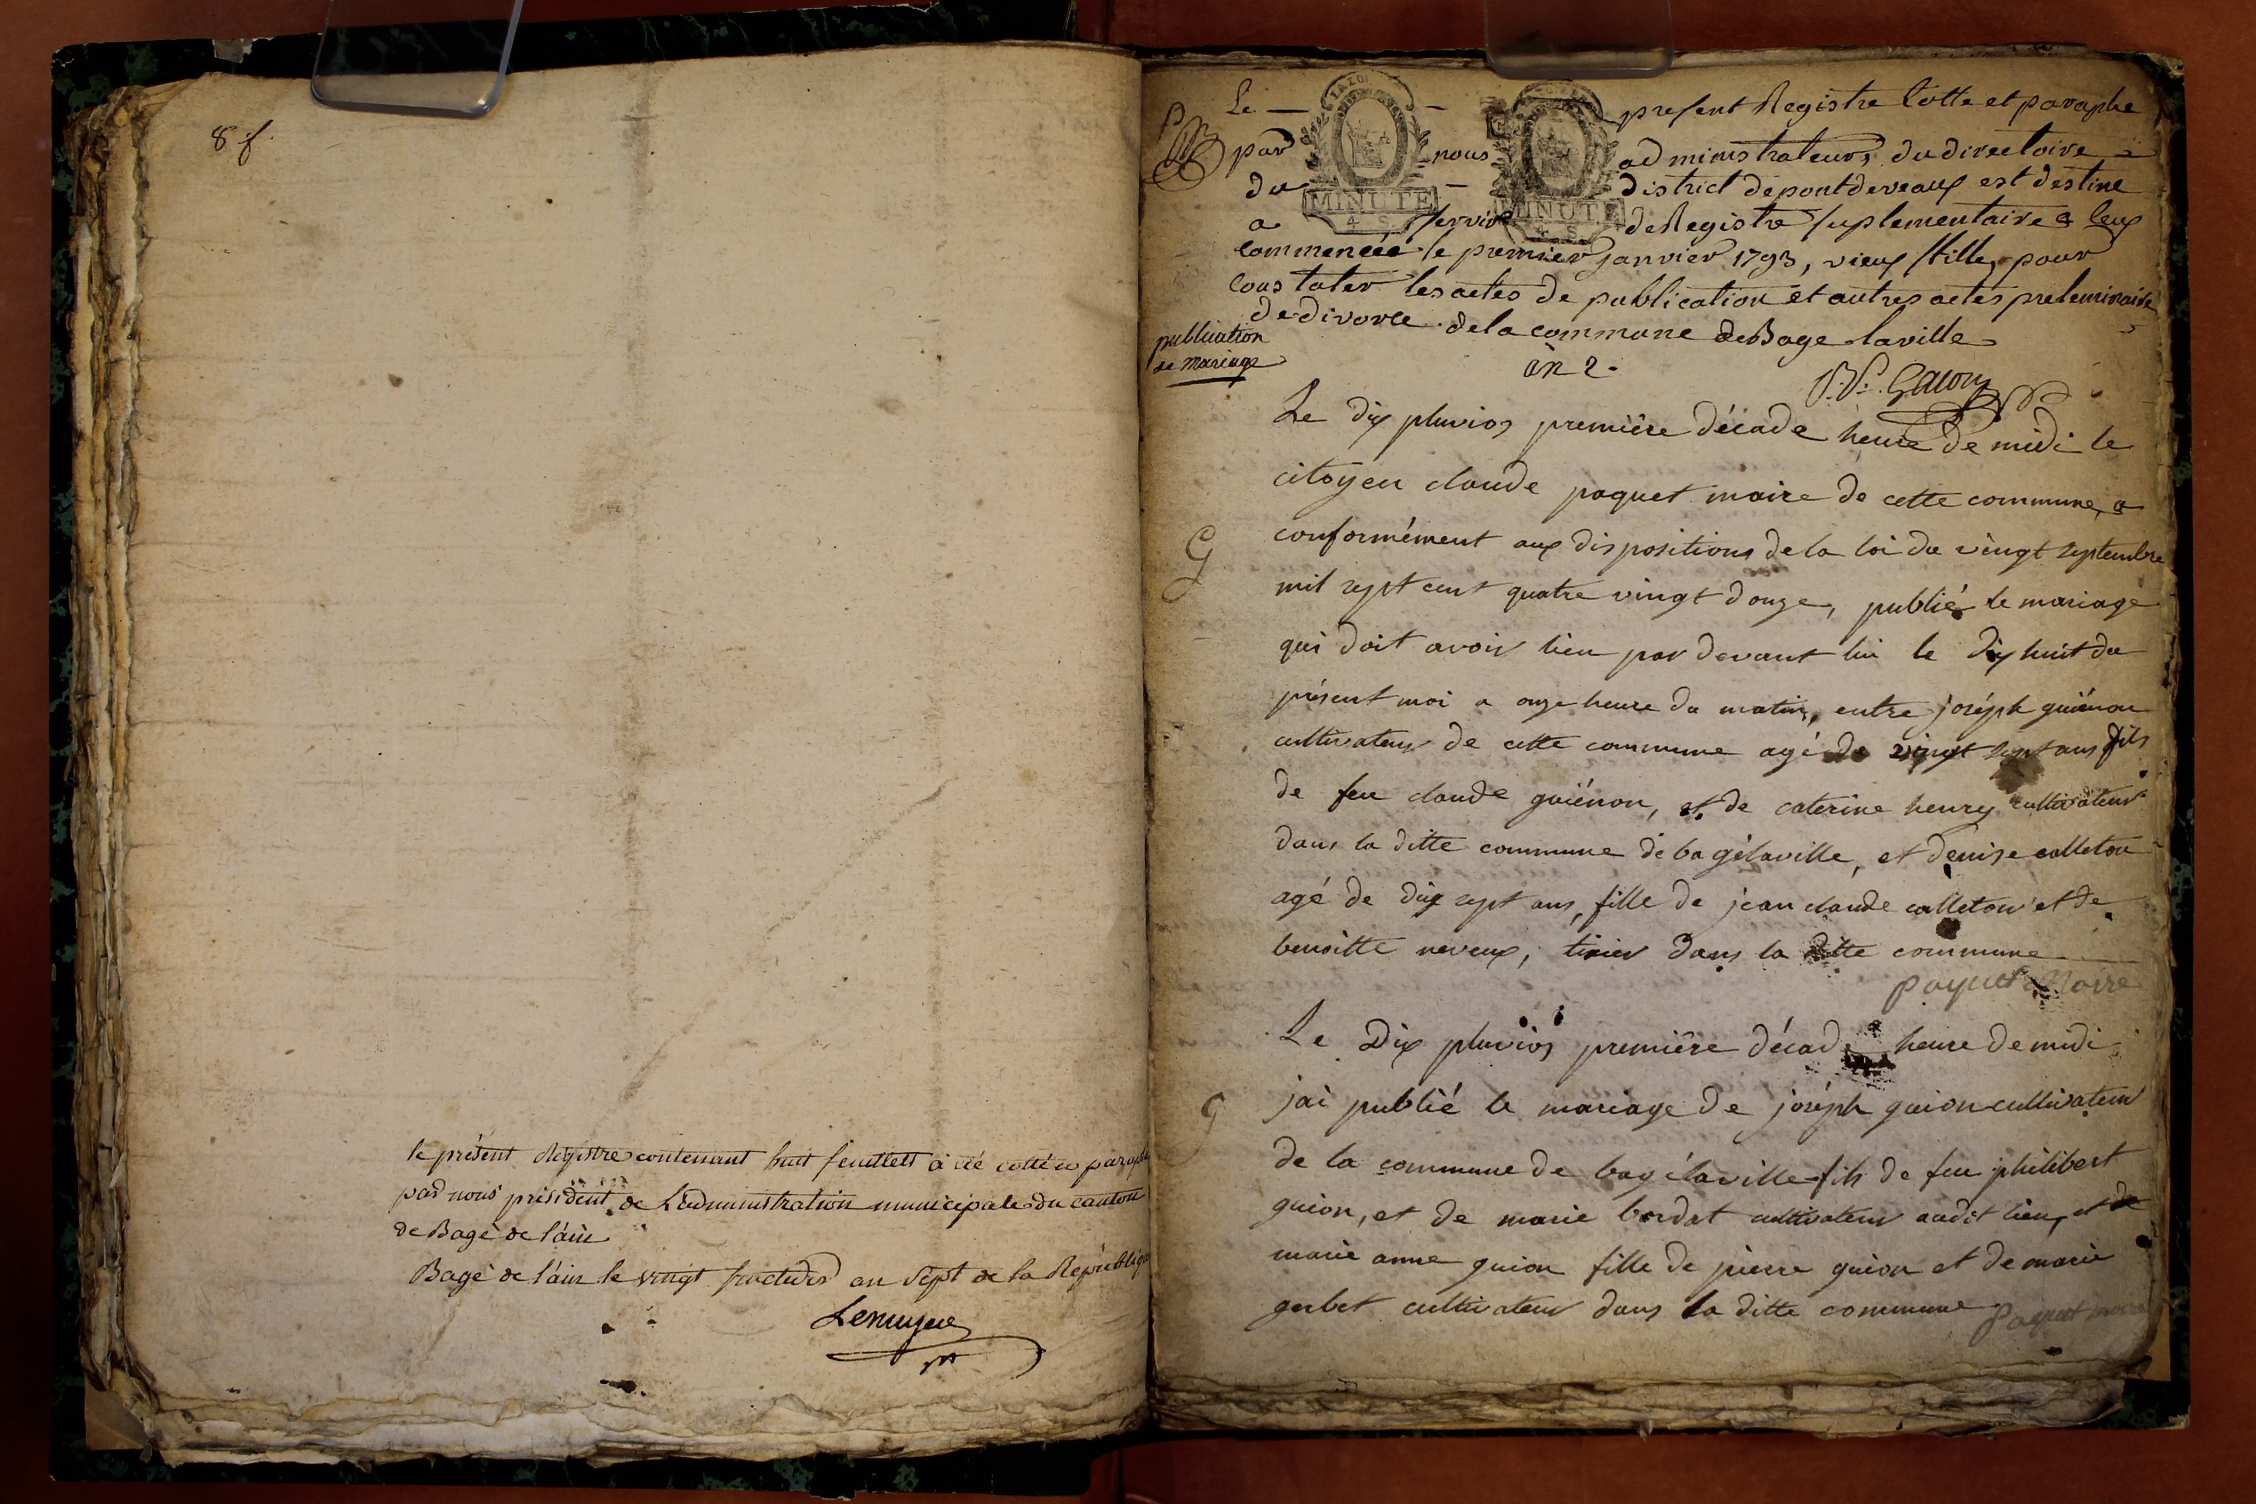 8 f.
le présent Régistre contenant huit feuillets à été cotté et paraphé
par nous président de L'administration municipale du canton
de Bagé de l'ain
Bagé de l'ain le vingt fructidor an sept de la Républiq
Lemuyue
Le — — present Registre Cotte et paraphe
par nous administrateurs du directoire
du — district de pontdeveaux est destiné
a servir de Registre suplementaire a leux
commencée le premier janvier 1793, vieux stille, pour
Cous tater les actes de publication et autres actes preleminaire
de divorce de la commune de Bage laville
publication
de mariage
an 2.
LA LOI
MINUTE
4. S.
MINUTE
4. S.
Le dix pluvios premiêre décade heure de midi le
citoyen claude paquet maire de cette commune, a
conformément aux dispositions de la loi du vingt septembre
G
mil sept cent quatre vingt douze, publié le mariage
qui doit avoir lieu par devant lui le dix huit du
présent moi a onze heure du matin, entre joséph guiénon
cultivateur de cette commune agé de vingt sept ans fils
de feu claude guiénon, et de caterine henry cultivateur
dans la ditte commune de bagélaville, et denise calleton
agé de dix sept ans, fille de jean claude calleton et de
benoitte neveux, tixier dans la ditte commune
paquet Maire
Le Dix pluvios premiêre décade heure de midi
jai publié le mariage de joséph guion cultivateur
G
de la commune de bagélaville fils de feu philibert
guion, et de marie bordat cultivateur audit lieu, et de
marie anne guion fille de pierre guion et de marie
gerbet cultivateur dans la ditte commune paquet maire